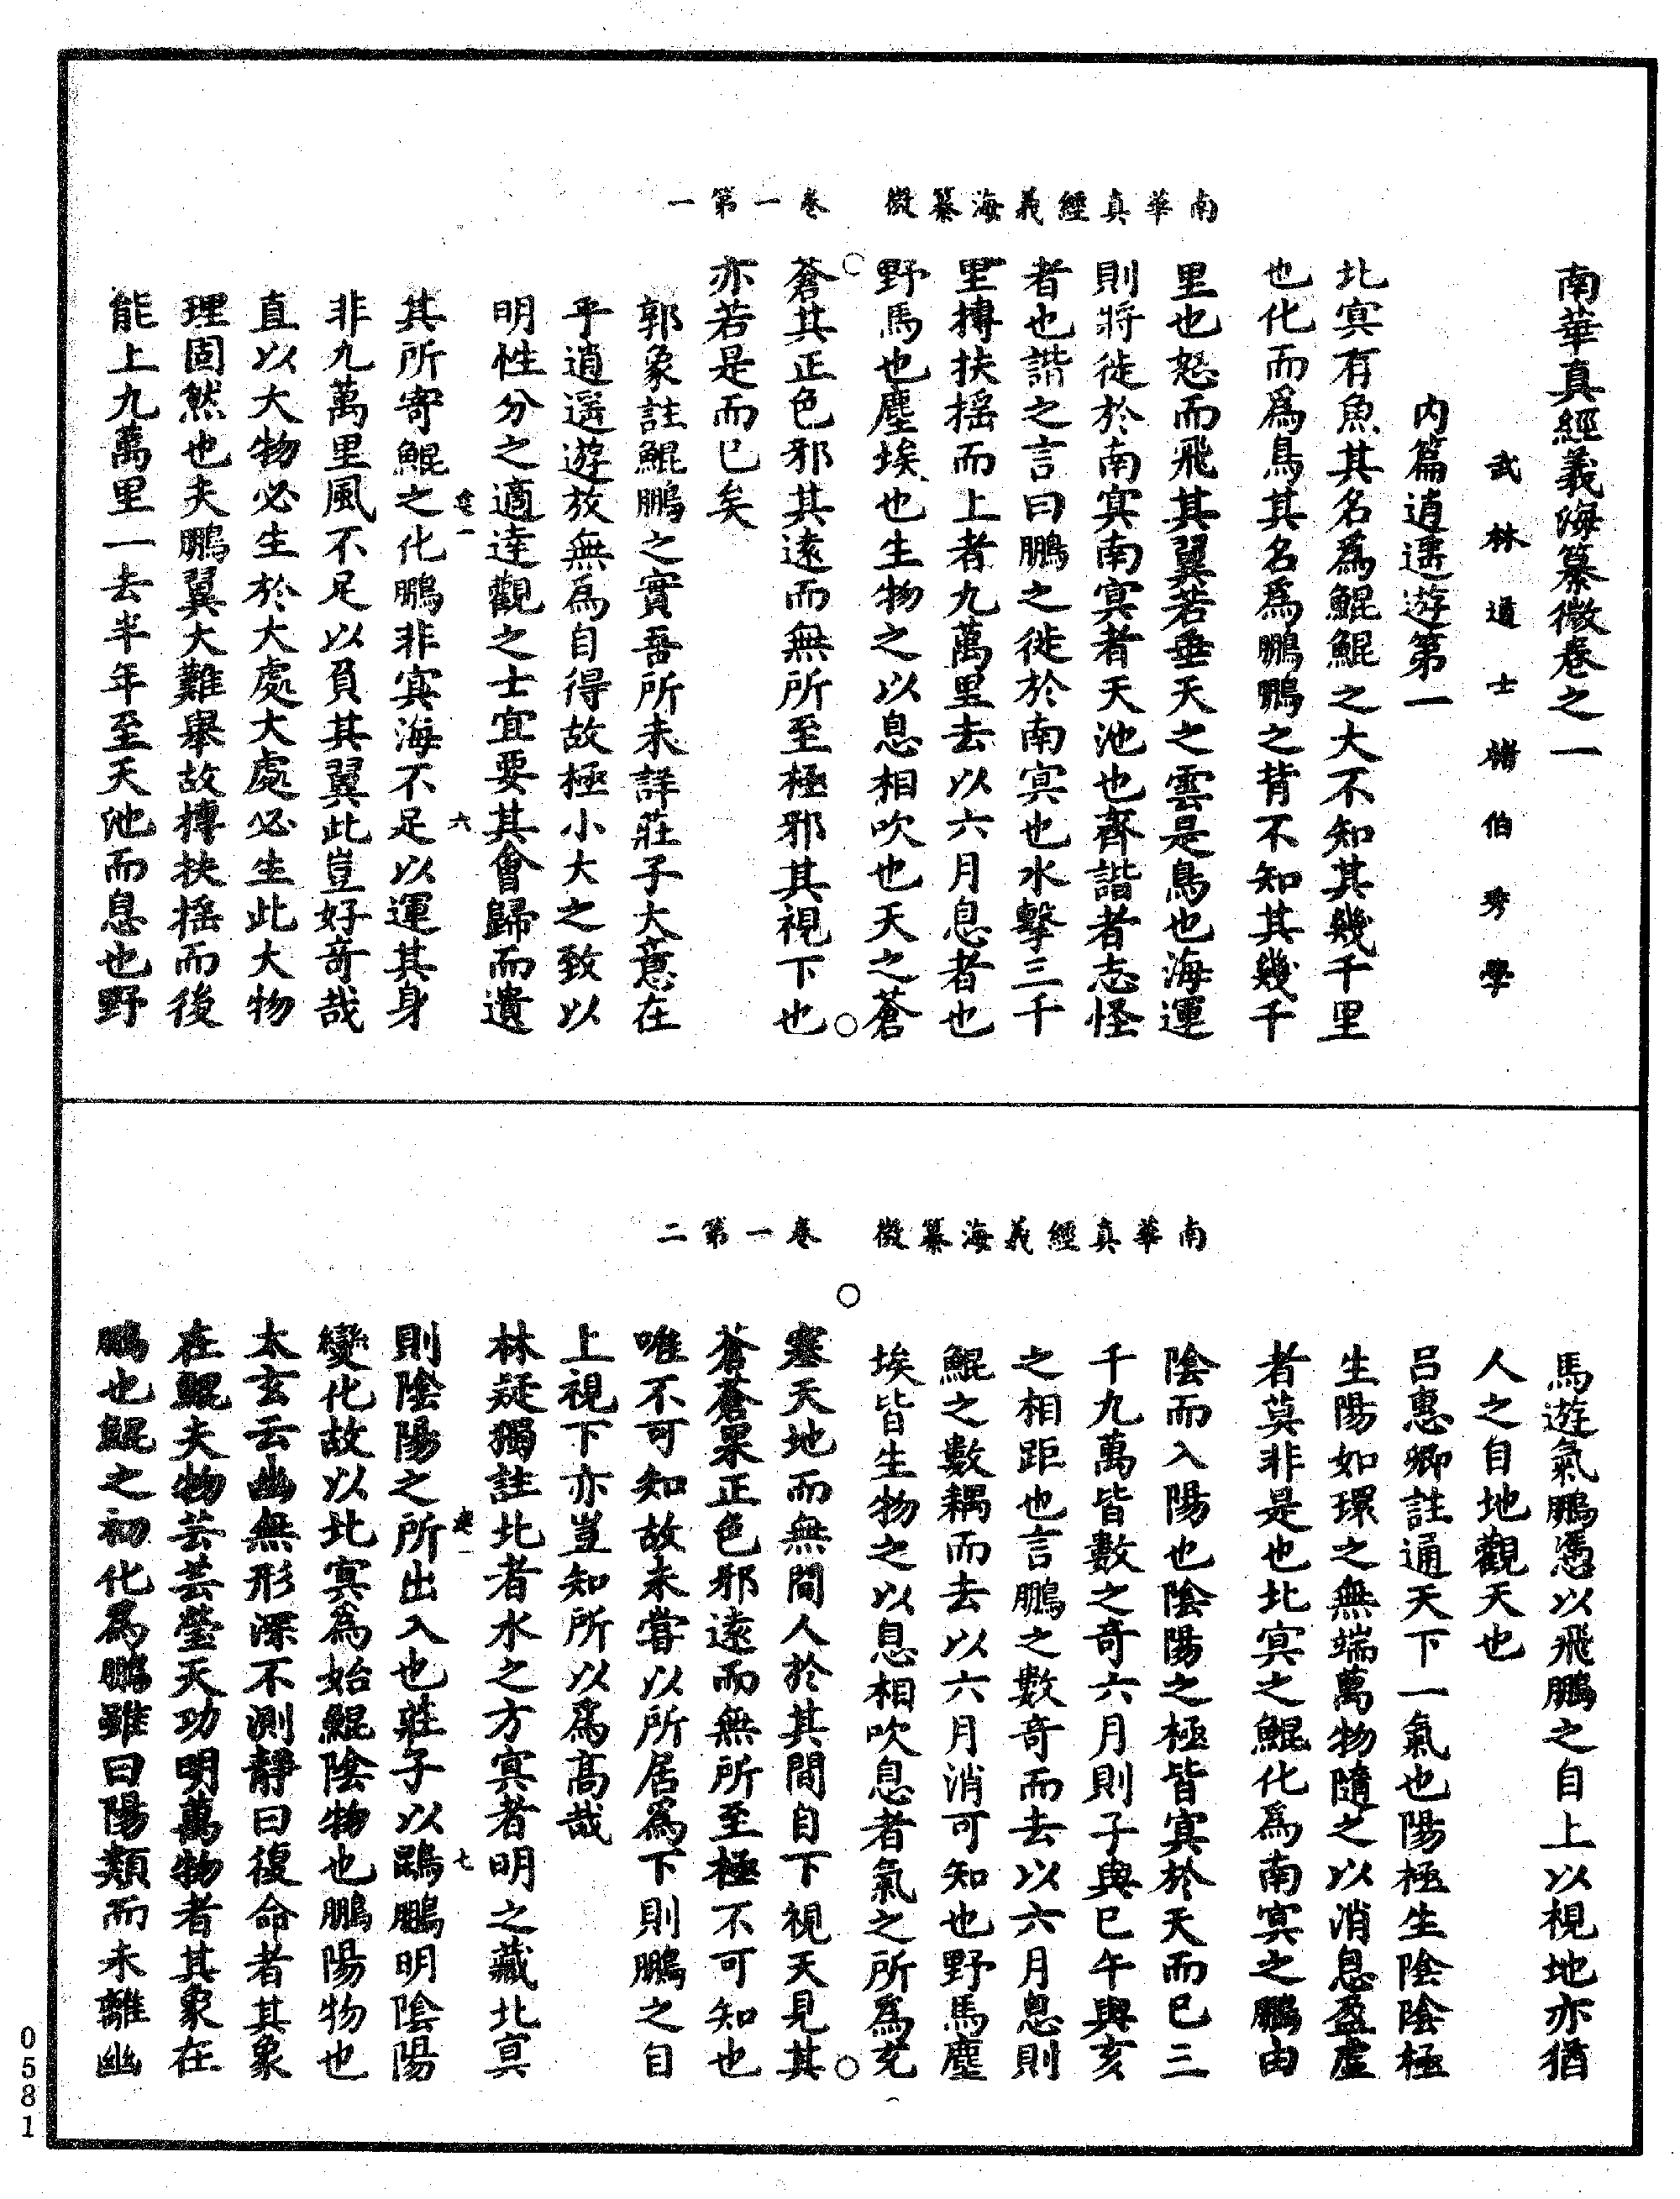 南華真經義海纂微　卷一第一
南華真經義海纂微卷之一
武林道士褚伯秀學
內篇逍遙遊第一
北冥有魚其名為鯤鯤之大不知其幾千里
也化而為鳥其名為鵬鵬之背不知其幾千
里也怒而飛其翼若垂天之雲是鳥也海運
則將徙於南冥南冥者天池也齊諧者志怪
者也諧之言曰鵬之徙於南冥也水擊三千
里摶扶搖而上者九萬里去以六月息者也
野馬也塵埃也生物之以息相吹也天之蒼
蒼其正色邪其遠而無所至極邪其視下也
亦若是而已矣
郭象註鯤鵬之實吾所未詳莊子大意在
乎逍遙遊放無為自得故極小大之致以
明性分之適達觀之士宜要其會歸而遺
卷一　六
其所寄鯤之化鵬非冥海不足以運其身
非九萬里風不足以負其翼此豈好奇哉
直以大物必生於大處大處必生此大物
理固然也夫鵬翼大難舉故摶扶搖而後
能上九萬里一去半年至天池而息也野
南華真經義海纂微　卷一第二
馬遊氣鵬憑以飛鵬之自上以視地亦猶
人之自地觀天也
呂惠卿註通天下一氣也陽極生陰陰極
生陽如環之無端萬物隨之以消息盈虛
者莫非是也北冥之鯤化為南冥之鵬由
陰而入陽也陰陽之極皆冥於天而已三
千九萬皆數之奇六月則子與巳午與亥
之相距也言鵬之數奇而去以六月息則
鯤之數耦而去以六月消可知也野馬塵
埃皆生物之以息相吹息者氣之所為充
塞天地而無間人於其間自下視天見其
蒼蒼果正色邪遠而無所至極不可知也
唯不可知故未嘗以所居為下則鵬之自
上視下亦豈知所以為高哉
林疑獨註北者水之方冥者明之藏北冥
卷一　七
則陰陽之所出入也莊子以鵾鵬明陰陽
變化故以北冥為始鯤陰物也鵬陽物也
太玄云幽無形深不測靜曰復命者其象
在鯤夫物芸芸瑩天功明萬物者其象在
鵬也鯤之初化為鵬雖曰陽類而未離幽
0581